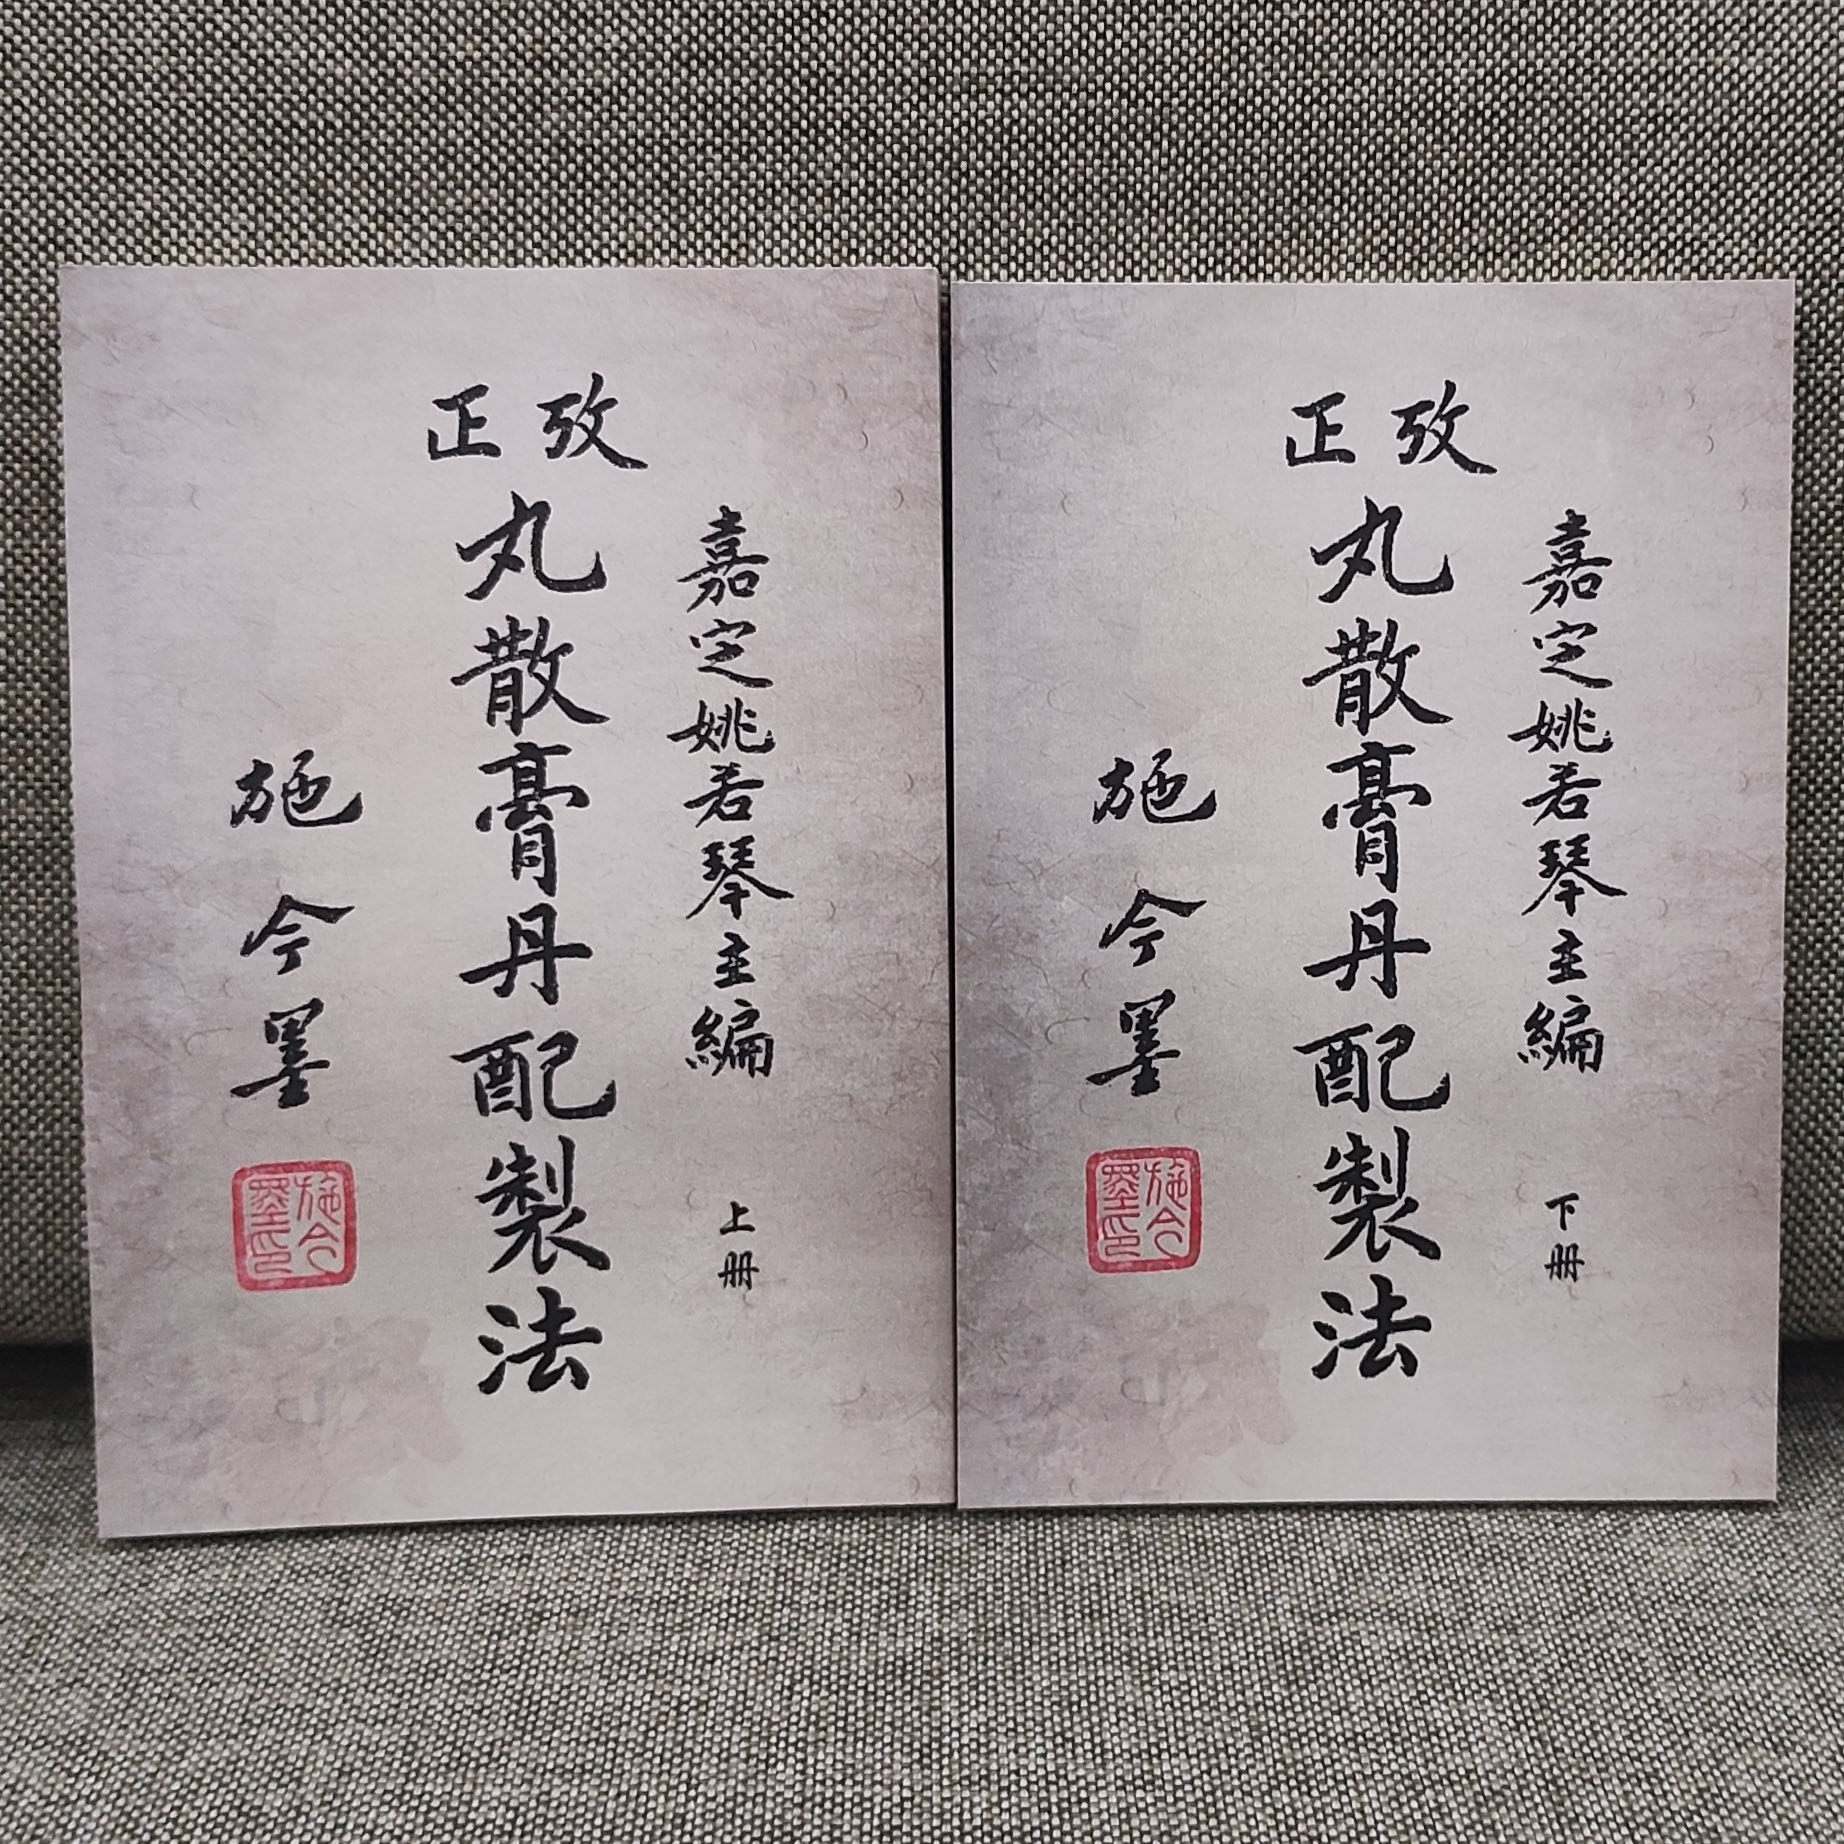 攷正
丸散膏丹配製法
嘉定姚若琴主編
上册
施今墨
施今墨印
攷正
丸散膏丹配製法
嘉定姚若琴主編
下册
施今墨
施今墨印